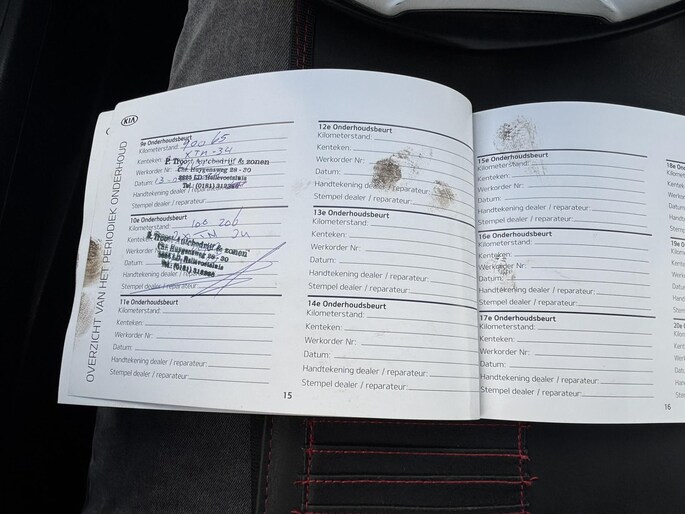 KIA
OVERZICHT VAN HET PERIODIEK ONDERHOUD
9e Onderhoudsbeurt
Kilometerstand: 90065
Kenteken: XTN-34
P. Troost Autobedrijf & zonen
Werkorder Nr:
Chr Huygensweg 28 - 30
3225 LD Hellevoetsluis
Datum: 13
Tel: (0181)
Handtekening dealer / reparateur:
Stempel dealer / reparateur:
10e Onderhoudsbeurt
Kilometerstand: 100 206
Kenteken:
P. Troost Autobedrijf & zonen
Werkorder
Chr Huygensweg 28 - 30
3225 LD Hellevoetsluis
Datum:
Tel: (0181)
Handtekening dealer / reparateur:
Stempel dealer / reparateur:
11e Onderhoudsbeurt
Kilometerstand:
Kenteken:
Werkorder Nr:
Datum:
Handtekening dealer / reparateur:
Stempel dealer / reparateur:
15
12e Onderhoudsbeurt
Kilometerstand:
Kenteken:
Werkorder Nr:
Datum:
Handtekening dealer / reparateur:
Stempel dealer / reparateur:
13e Onderhoudsbeurt
Kilometerstand:
Kenteken:
Werkorder Nr:
Datum:
Handtekening dealer / reparateur:
Stempel dealer / reparateur:
14e Onderhoudsbeurt
Kilometerstand:
Kenteken:
Werkorder Nr:
Datum:
Handtekening dealer / reparateur:
Stempel dealer / reparateur:
15e Onderhoudsbeurt
Kilometerstand:
Kenteken:
Werkorder Nr:
Datum:
Handtekening dealer / reparateur:
Stempel dealer / reparateur:
16e Onderhoudsbeurt
Kilometerstand:
Kenteken:
Werkorder Nr:
Datum:
Handtekening dealer / reparateur:
Stempel dealer / reparateur:
17e Onderhoudsbeurt
Kilometerstand:
Kenteken:
Werkorder Nr:
Datum:
Handtekening dealer / reparateur:
Stempel dealer / reparateur:
16
18e
19e
20e